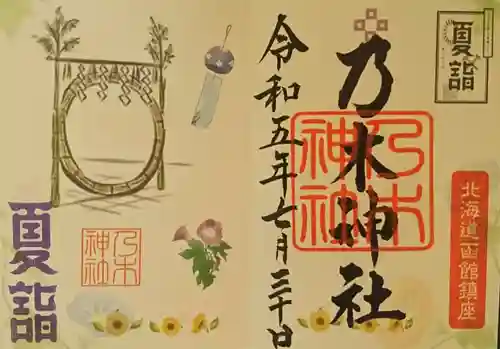 夏詣
北海道函館鎮座
乃木神社
乃木神社
令和五年七月三十日
乃木神社
夏詣